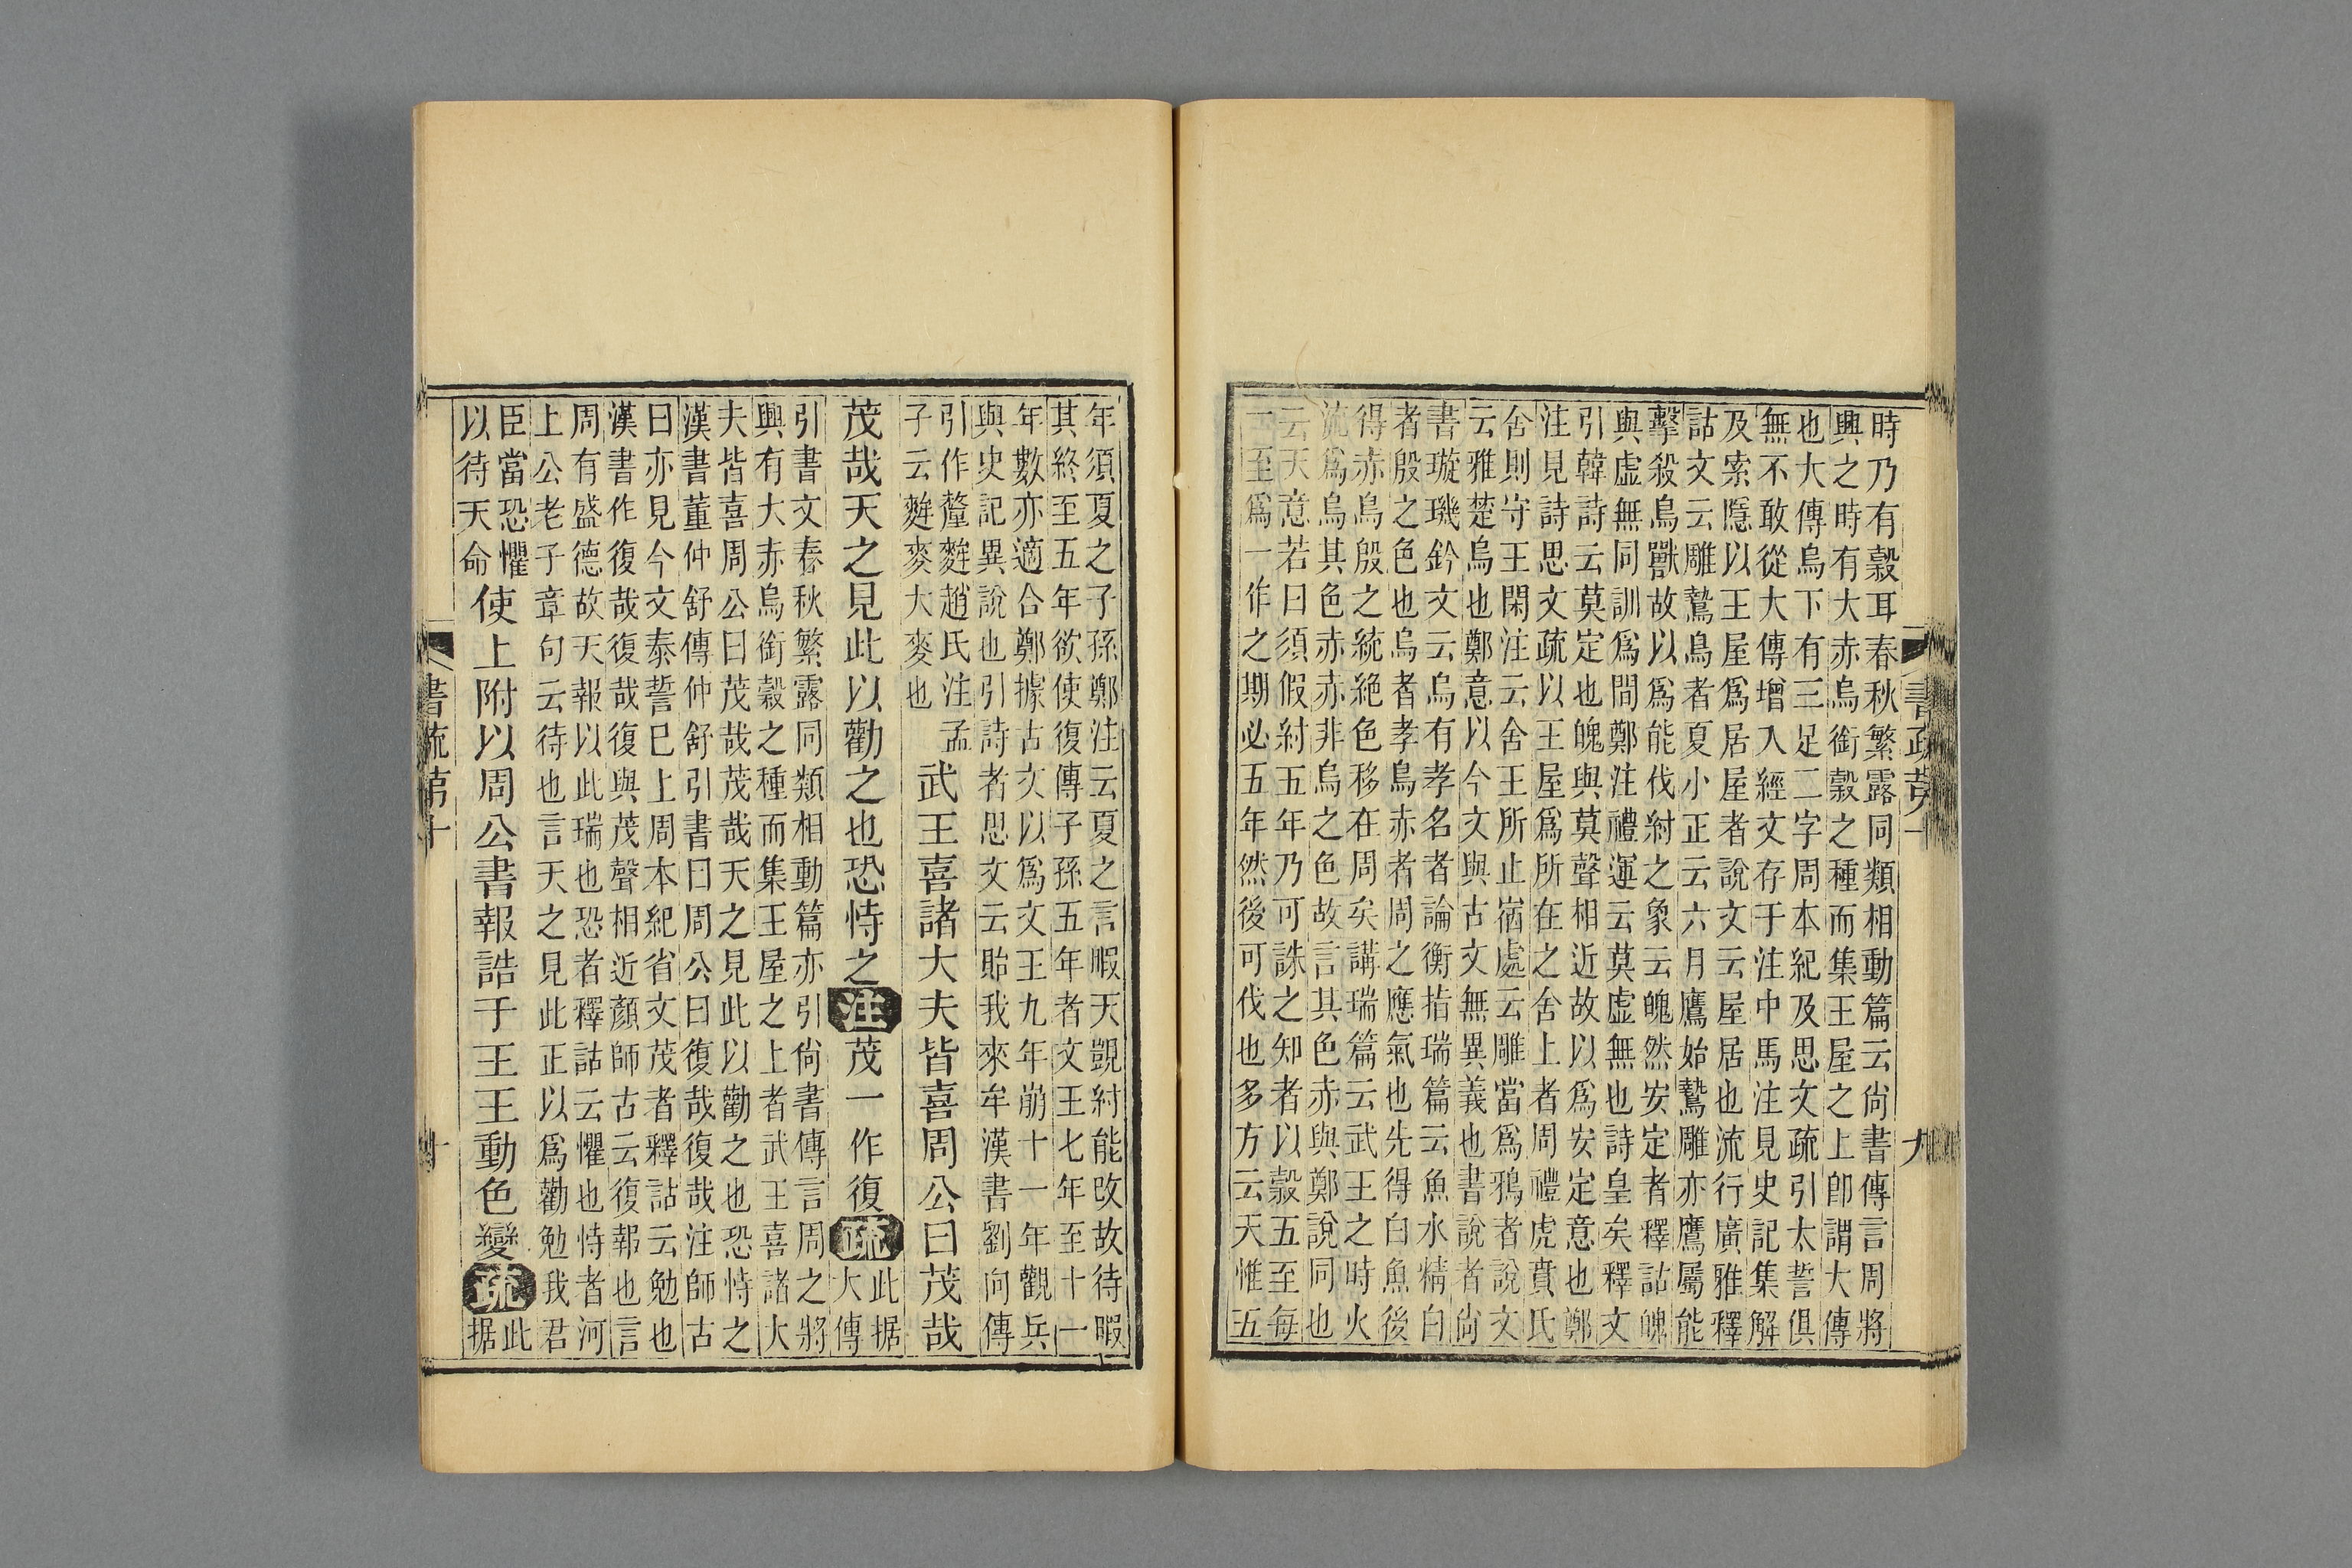 時乃有穀耳春秋繁露同類相動篇云尚書傳言周將
興之時有大赤烏銜穀之種而集王屋之上卽謂大傳
也大傳烏下有三足二字周本紀及思文疏引太誓俱
無不敢從大傳增入經文存于注中馬注見史記集解
及索隱以王屋爲居屋者說文云屋居也流行廣雅釋
詁文云雕鷙鳥者夏小正云六月鷹始鷙雕亦鷹屬能
擊殺鳥獸故以爲能伐紂之象云魄然安定者釋詁魄
與虛無同訓爲間鄭注禮運云莫虛無也詩皇矣釋文
引韓詩云莫定也魄與莫聲相近故以爲安定意也鄭
注見詩思文疏以王屋爲所在之舍上者周禮虎賁氏
舍則守王閑注云舍王所止宿處云雕當爲鴉者說文
云雅楚烏也鄭意以今文與古文無異義也書說者尙
書璇璣鈐文云烏有孝名者論衡指瑞篇云魚水精白
者殷之色也烏者孝鳥赤者周之應氣也先得白魚後
得赤烏殷之統絶色移在周矣講瑞篇云武王之時火
流爲烏其色赤赤非烏之色故言其色赤與鄭說同也
云天意若曰須假紂五年乃可誅之知者以穀五至每
一至爲一作之期必五年然後可伐也多方云天惟五
書疏第十
九
年須夏之子孫鄭注云夏之言暇天覬紂能改故待暇
其終至五年欲使復傳子孫五年者文王七年至十一
年數亦適合鄭據古文以爲文王九年崩十一年觀兵
與史記異說也引詩者思文云貽我來牟漢書劉向傳
引作釐麰趙氏注孟
子云麰麥大麥也
武王喜諸大夫皆喜周公曰茂哉
茂哉天之見此以勸之也恐恃之注茂一作復疏
此据
大傳
引書文春秋繁露同類相動篇亦引尙書傳言周之將
興有大赤烏銜穀之種而集王屋之上者武王喜諸大
夫皆喜周公曰茂哉茂哉天之見此以勸之也恐恃之
漢書董仲舒傳仲舒引書曰周公曰復哉復哉注師古
曰亦見今文泰誓已上周本紀省文茂者釋詁云勉也
漢書作復哉復哉復與茂聲相近顏師古云復報也言
周有盛德故天報以此瑞也恐者釋詁云懼也恃者河
上公老子章句云待也言天之見此正以爲勸勉我君
臣當恐懼
以待天命
使上附以周公書報誥于王王動色變疏
此
据
書疏第十
十